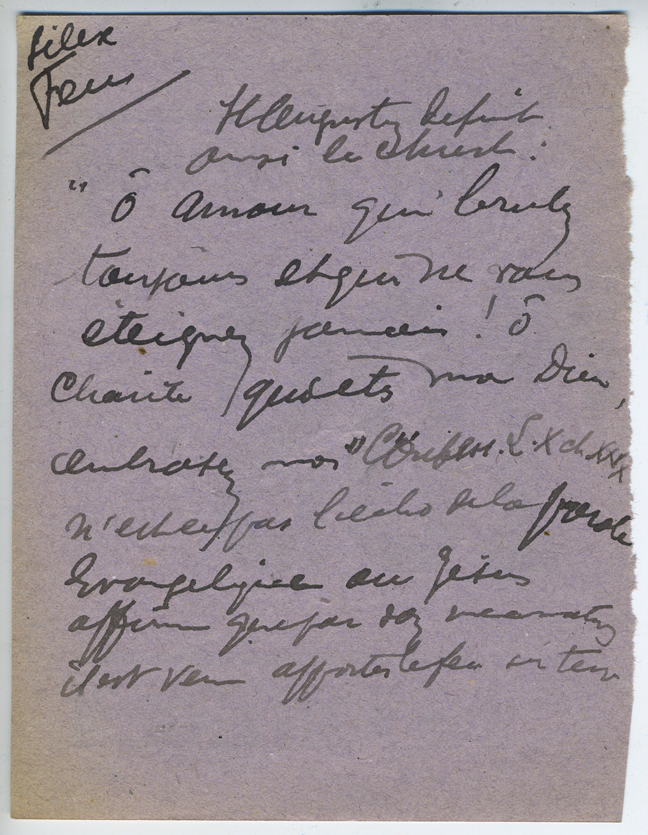 Silex
Feu
St Augustin définit
ainsi le Christ :
" Ô amour qui brulez
toujours et qui ne vous
éteignez jamais ! ô
Charité qui êts mon Dieu,
embrasez moi " Confess. L. X ch XXX
n'est ce pas l'écho de la parole
Evangelique où Jésus
affirme que par son incarnation
il est venu apporter le feu sur terre